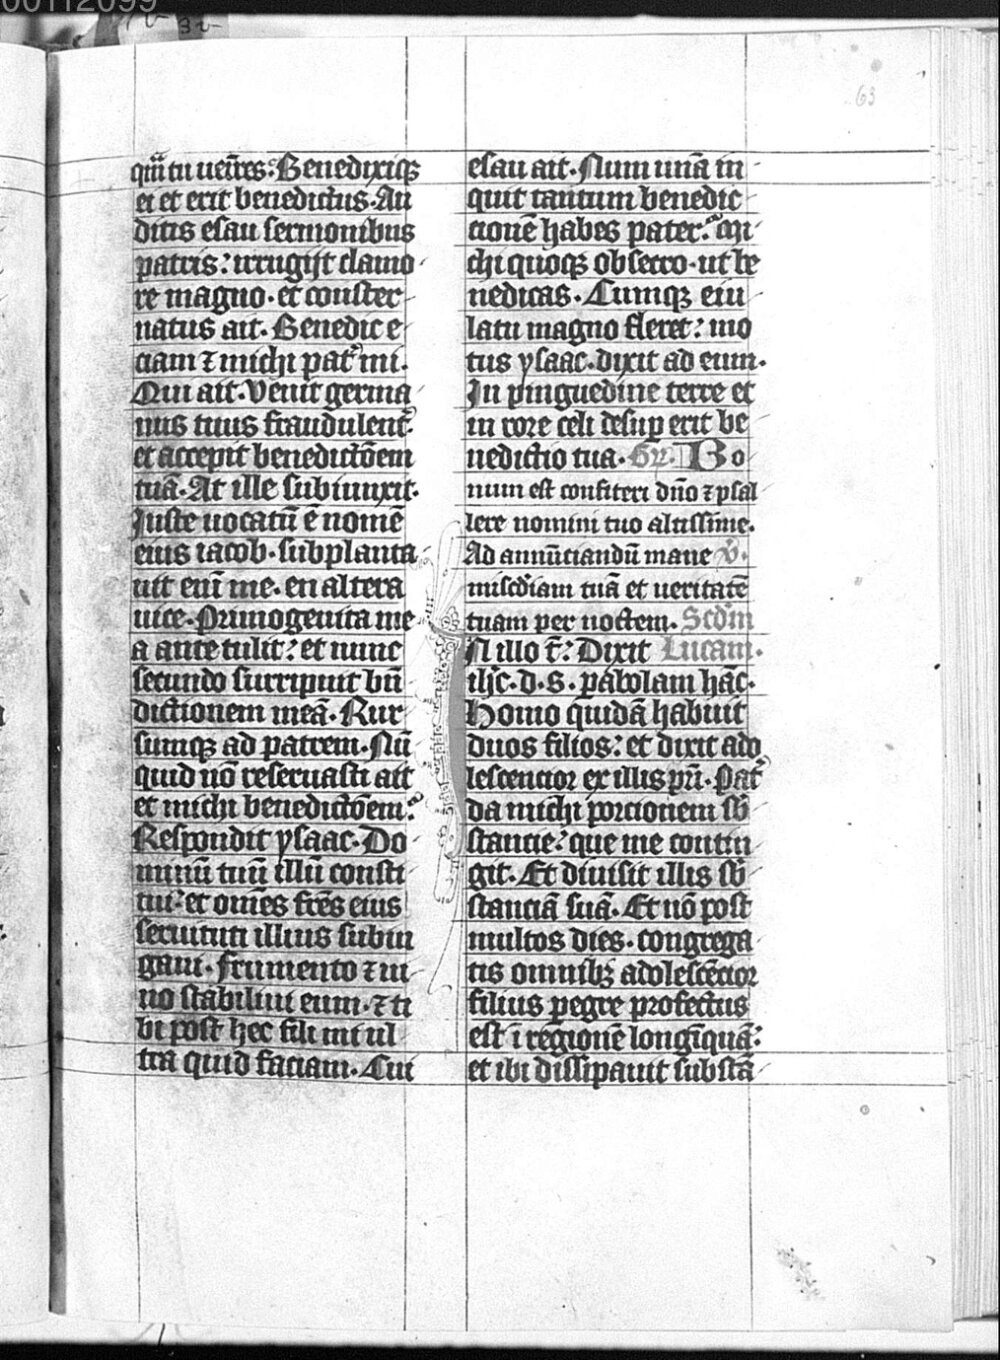 00112099
63
qm̄ tu uen̄res. Benedixiq̄
ei et erit benedictus. Au
ditis esau sermonibus
patris: irrugijt clamo
re magno. et conster
natus ait. Benedic e
ciam ⁊ michi pat̉ mi.
Qui ait. Venit germa
nus tuus fraudulent̉
et accepit benedictōem
tuā. At ille subiunxit.
Juste uocatū ē nomē
eius iacob. subplanta
uit enī me. en altera
uice. Primogenita me
a ante tulit: et nunc
secundo surripuit bn̄
dictionem meā. Rur
sumqꝫ ad patrem. Nū
quid nō reseruasti ait
et michi benedictōem?
Respondit ysaac. Do
minū tuū illū consti
tui: et om̄es fr̄es eius
seruituti illius subiu
gaui. frumento ⁊ ui
no stabiliui eum. ⁊ ti
bi post hec fili mi ul
tra quid faciam. Cui
esau ait. Num unā in
quit tantum benedic
tionē habes pater? Mi
chi quoqꝫ obsecro. ut be
nedicas. Cumqꝫ eiu
latu magno fleret: mo
tus ysaac. dixit ad eum.
In pinguedine terre et
in rore celi desuꝑ erit be
nedictio tua. Gr̄. Bo
num est confiteri dn̄o ⁊ psal
lere nomini tuo altissime.
Ad annūciandū mane v̄.
misc̄diam tuā et ueritatē
tuam per noctem. Scd̄m
IN illo t̄: Dixit Lucam.
ih̄c. d. s. ꝑabolam hāc.
Homo quidā habuit
duos filios: et dixit ado
lescencior ex illis pr̄i. Pat̉
da michi porcionem sb̄
stancie: que me contin
git. Et diuisit illis sb̄
stanciā suā. Et nō post
multos dies. congrega
tis omnibꝫ adolescēcior
filius pegre profectus
est ī regionē longīquā:
et ibi dissipauit substā